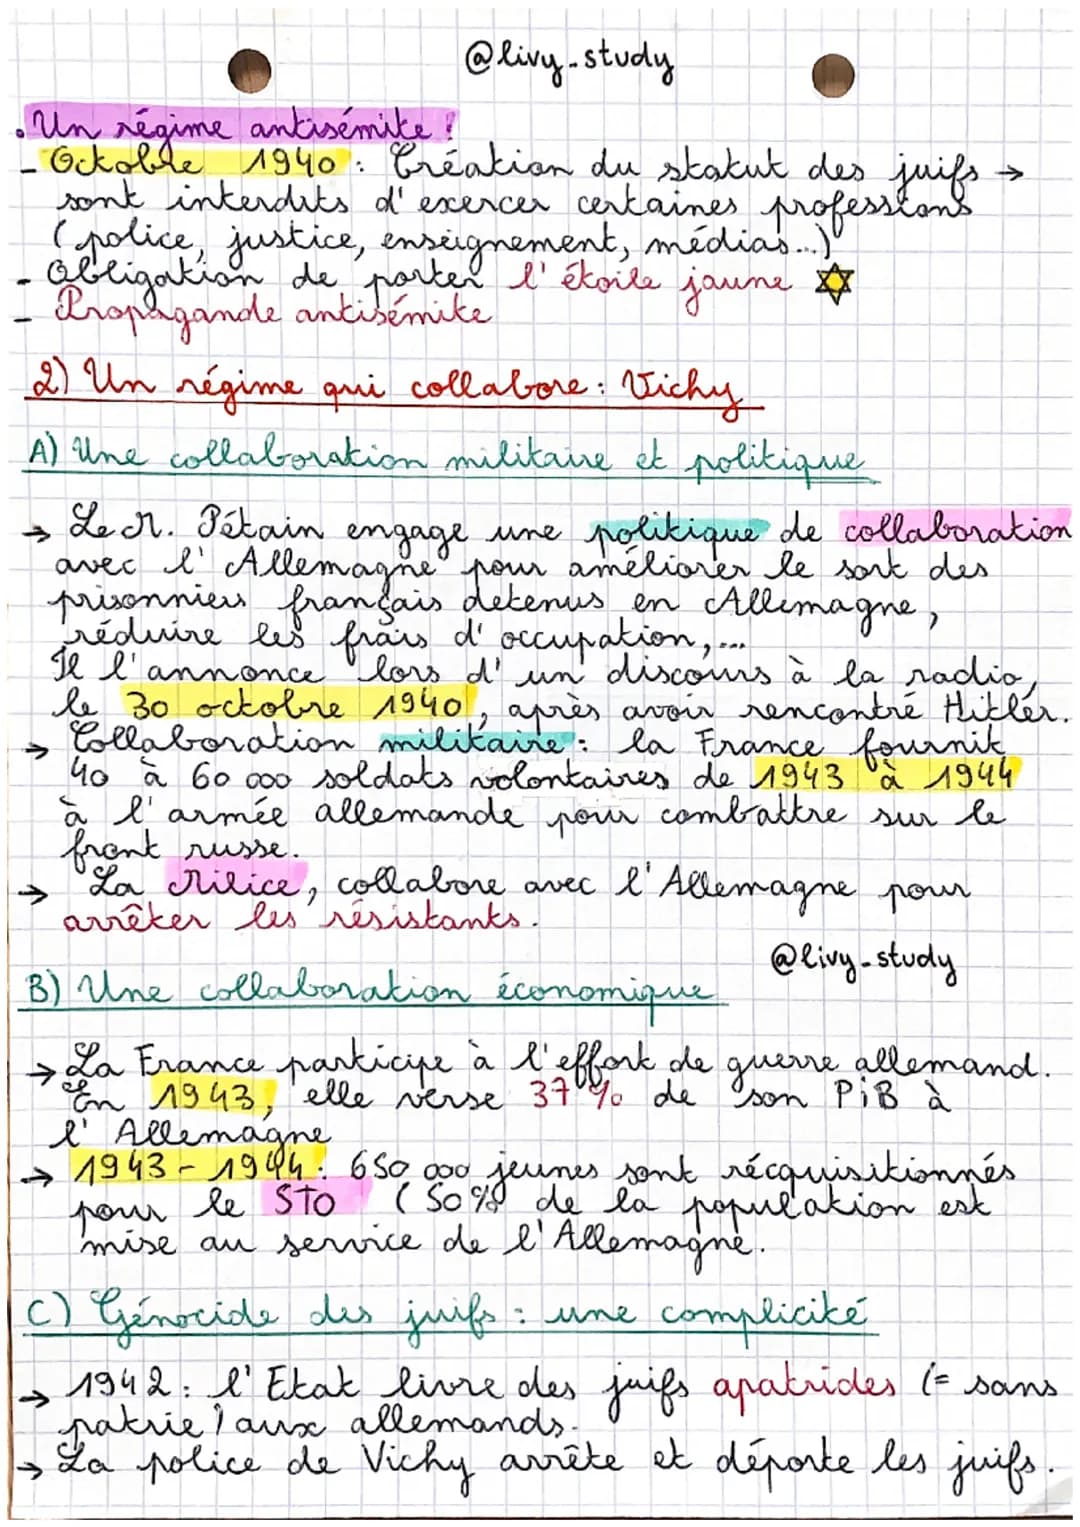 @livy_study
• Un régime antisémite !
- Octobre 1940 : Création du statut des juifs →
sont interdits d'exercer certaines professions
(police, justice, enseignement, médias...)
- Obligation de porter l'étoile jaune
- Propagande antisémite
2) Un régime qui collabore : Vichy
A) Une collaboration militaire et politique
→ Le M. Pétain engage une politique de collaboration
avec l'Allemagne pour améliorer le sort des
prisonniers français detenus en Allemagne,
réduire les frais d'occupation,...
Il l'annonce lors d'un discours à la radio,
le 30 octobre 1940, après avoir rencontré Hitler.
→ Collaboration militaire : la France fournit
40 à 60 000 soldats volontaires de 1943 à 1944
à l'armée allemande pour combattre sur le
front russe.
→ La Milice, collabore avec l'Allemagne pour
arrêter les résistants.
@livy_study
B) Une collaboration économique
→ La France participe à l'effort de guerre allemand.
En 1943, elle verse 37% de son PiB à
l'Allemagne
→ 1943 - 1944 : 650 000 jeunes sont récquisitionnés
pour le STO (50% de la population est
mise au service de l'Allemagne.
C) Génocide des juifs : une complicité
→ 1942 : l'Etat livre des juifs apatrides (= sans
patrie) aux allemands.
→ La police de Vichy arrête et déporte les juifs.